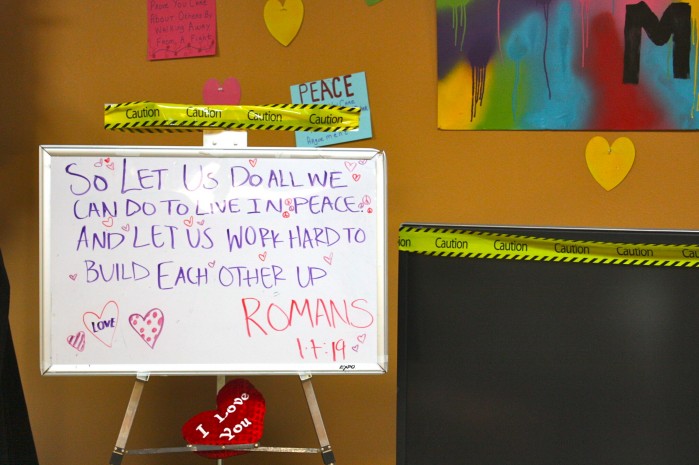 Prove You Care
About Others By
Walking Away
From A Fight
PEACE
Caution Caution Caution Caution
M
SO LET US DO ALL WE
CAN DO TO LIVE IN PEACE.
AND LET US WORK HARD TO
BUILD EACH OTHER UP
LOVE
ROMANS
1.4.19
EXPO
I Love
You
Caution Caution Caution Caution